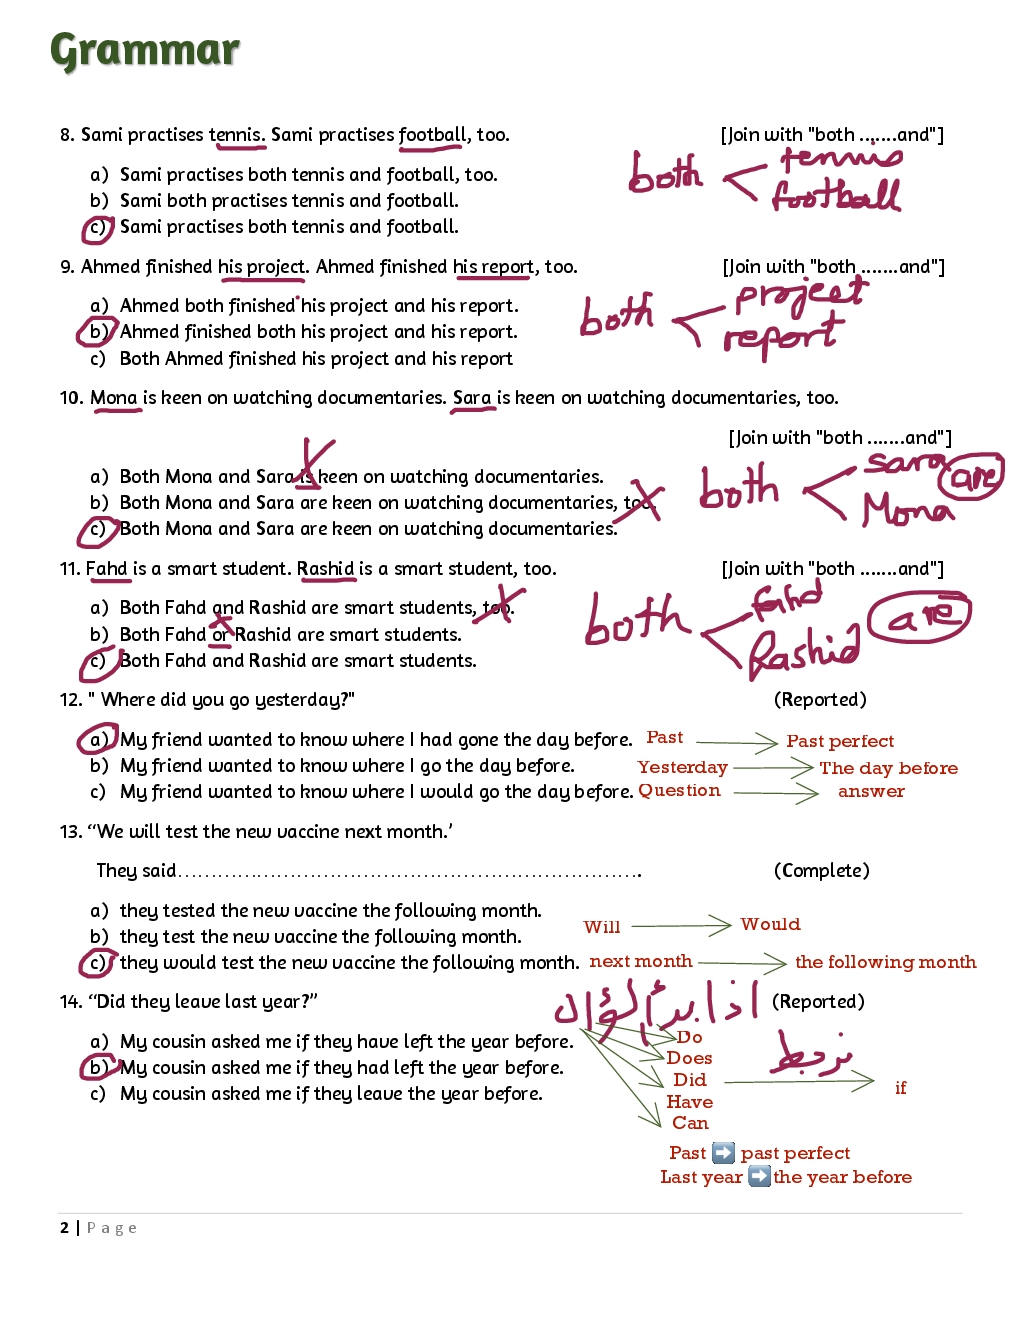 Grammar
8. Sami practises tennis. Sami practises football, too. [Join with "both .......and"]
both tennis
football
a) Sami practises both tennis and football, too.
b) Sami both practises tennis and football.
c) Sami practises both tennis and football.
9. Ahmed finished his project. Ahmed finished his report, too. [Join with "both .......and"]
both project
report
a) Ahmed both finished his project and his report.
b) Ahmed finished both his project and his report.
c) Both Ahmed finished his project and his report
10. Mona is keen on watching documentaries. Sara is keen on watching documentaries, too.
[Join with "both .......and"]
both sara are
Mona
a) Both Mona and Sara is keen on watching documentaries.
b) Both Mona and Sara are keen on watching documentaries, too.
c) Both Mona and Sara are keen on watching documentaries.
11. Fahd is a smart student. Rashid is a smart student, too. [Join with "both .......and"]
both fahd are
Rashid
a) Both Fahd and Rashid are smart students, too.
b) Both Fahd or Rashid are smart students.
c) Both Fahd and Rashid are smart students.
12. " Where did you go yesterday?" (Reported)
a) My friend wanted to know where I had gone the day before. Past Past perfect
b) My friend wanted to know where I go the day before. Yesterday The day before
c) My friend wanted to know where I would go the day before. Question answer
13. “We will test the new vaccine next month.’
They said……………………………………………………………. (Complete)
a) they tested the new vaccine the following month.
Will Would
b) they test the new vaccine the following month.
c) they would test the new vaccine the following month. next month the following month
14. “Did they leave last year?” (Reported)
اذا
a) My cousin asked me if they have left the year before. Do
b) My cousin asked me if they had left the year before. Does
Did if
c) My cousin asked me if they leave the year before.
Have
Can
Past ➡ past perfect
Last year ➡ the year before
2 | Page